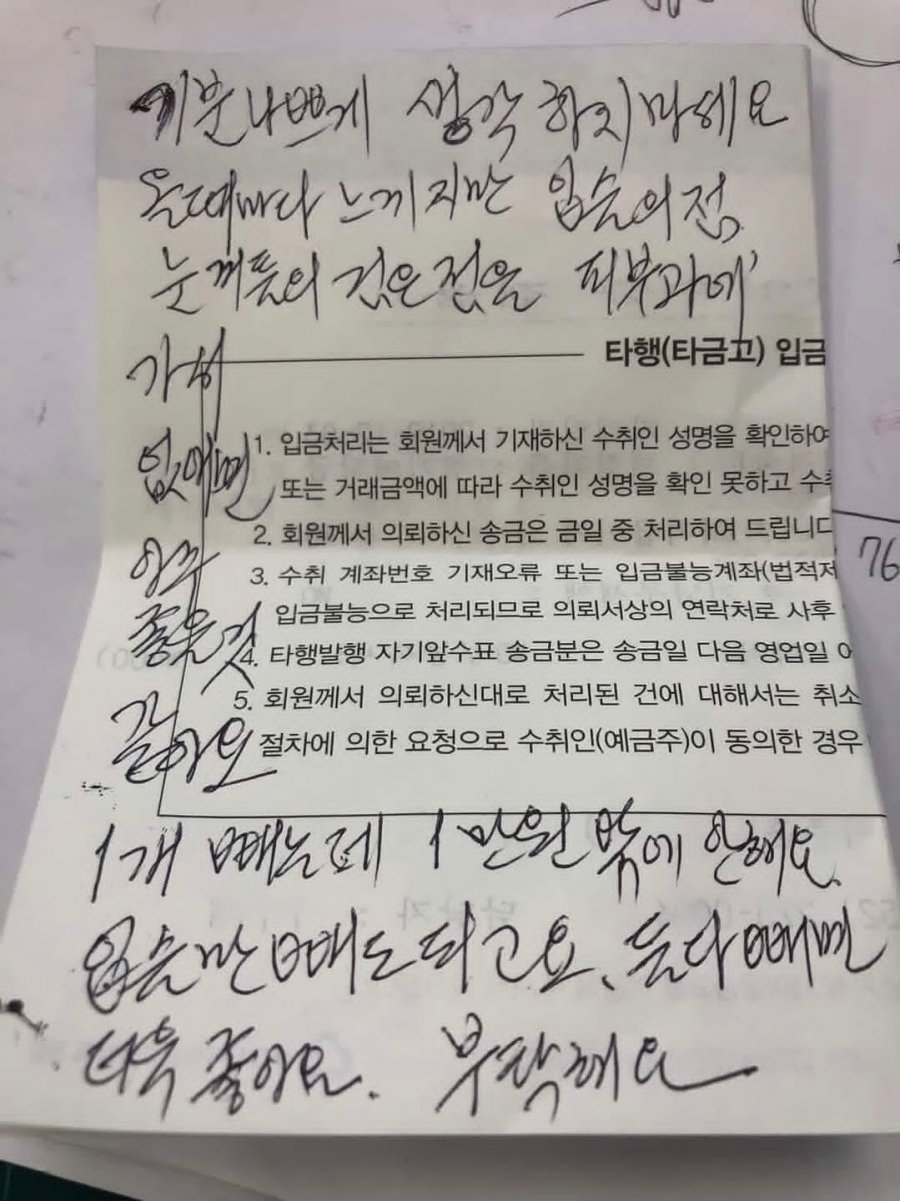 기분나쁘게 생각 하지마세요
올때마다 느끼지만 입술의점,
눈꺼풀의 검은점을 피부과에
가서
타행(타금고) 입금
없애면
1. 입금처리는 회원께서 기재하신 수취인 성명을 확인하여
또는 거래금액에 따라 수취인 성명을 확인 못하고 수취
2. 회원께서 의뢰하신 송금은 금일 중 처리하여 드립니다
아주
3. 수취 계좌번호 기재오류 또는 입금불능계좌(법적제
입금불능으로 처리되므로 의뢰서상의 연락처로 사후
좋을것
4. 타행발행 자기앞수표 송금분은 송금일 다음 영업일
5. 회원께서 의뢰하신대로 처리된 건에 대해서는 취소
같아요
절차에 의한 요청으로 수취인(예금주)이 동의한 경우
1개 빼는데 1만원 밖에 안해요.
입술만 빼도 되고요, 둘다 빼면
더욱 좋아요. 부탁해요
76